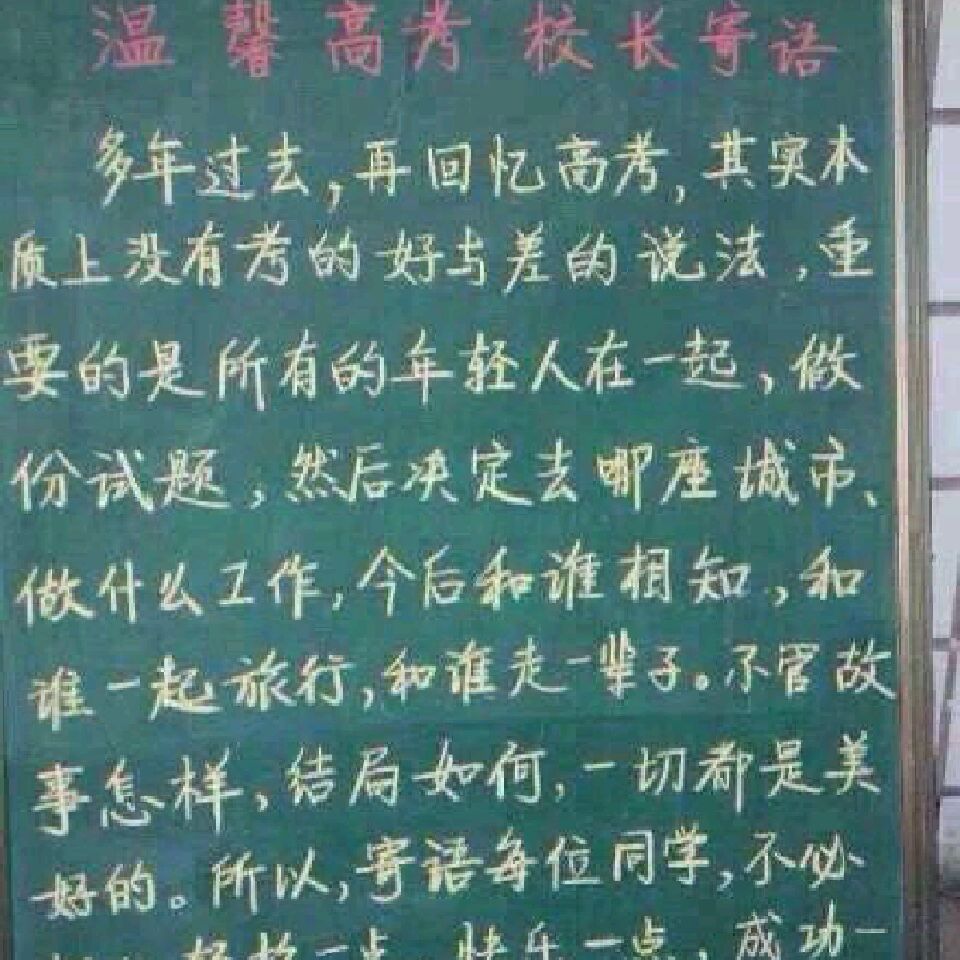 温馨高考 校长寄语
多年过去,再回忆高考,其实本
质上没有考的好与差的说法,重
要的是所有的年轻人在一起,做
份试题,然后决定去哪座城市、
做什么工作,今后和谁相知,和
谁一起旅行,和谁走一辈子。不管故
事怎样,结局如何,一切都是美
好的。所以,寄语每位同学,不必
轻松一点,快乐一点,成功一